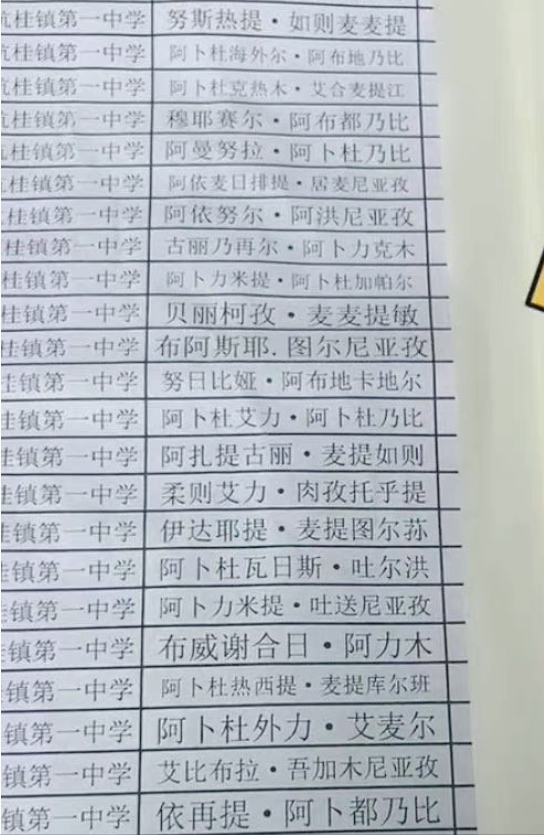 杭桂镇第一中学 努斯热提·如则麦麦提
杭桂镇第一中学 阿卜杜海外尔·阿布地乃比
杭桂镇第一中学 阿卜杜克热木·艾合麦提江
杭桂镇第一中学 穆耶赛尔·阿布都乃比
杭桂镇第一中学 阿曼努拉·阿卜杜乃比
桂镇第一中学 阿依麦日排提·居麦尼亚孜
桂镇第一中学 阿依努尔·阿洪尼亚孜
桂镇第一中学 古丽乃再尔·阿卜力克木
桂镇第一中学 阿卜力米提·阿卜杜加帕尔
桂镇第一中学 贝丽柯孜·麦麦提敏
桂镇第一中学 布阿斯耶.图尔尼亚孜
桂镇第一中学 努日比娅·阿布地卡地尔
桂镇第一中学 阿卜杜艾力·阿卜杜乃比
桂镇第一中学 阿扎提古丽·麦提如则
桂镇第一中学 柔则艾力·肉孜托乎提
桂镇第一中学 伊达耶提·麦提图尔荪
桂镇第一中学 阿卜杜瓦日斯·吐尔洪
镇第一中学 阿卜力米提·吐送尼亚孜
镇第一中学 布威谢合日·阿力木
镇第一中学 阿卜杜热西提·麦提库尔班
镇第一中学 阿卜杜外力·艾麦尔
镇第一中学 艾比布拉·吾加木尼亚孜
镇第一中学 依再提·阿卜都乃比